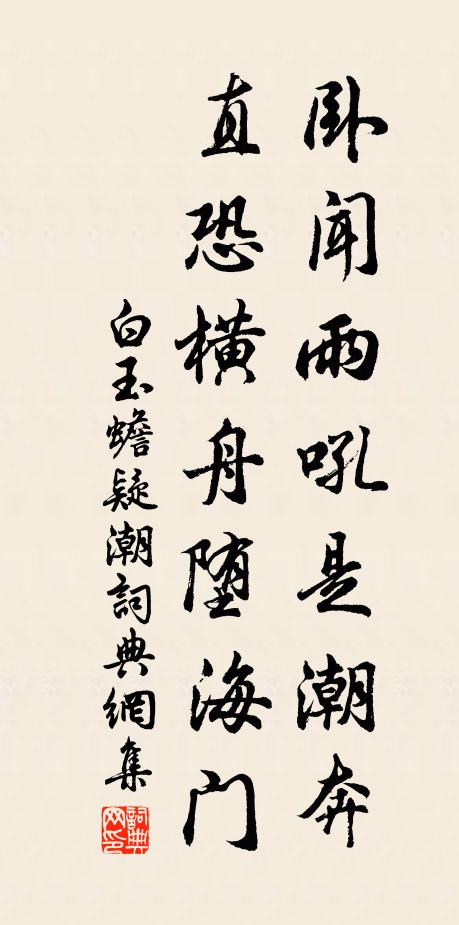 卧聞雨吼是潮奔
直恐橫舟墮海門
白玉蟾疑潮詞典網集
詞典网印